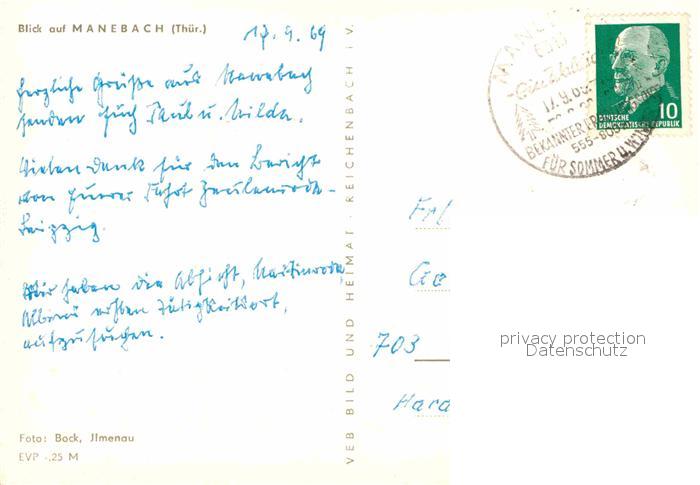 Blick auf MANEBACH (Thür.)
17.9.69
Herzliche Grüße aus Manebach
senden Euch Paul u. Hilde.
Vielen Dank für den Bericht
von Eurer Fahrt Zeulenroda-
Leipzig.
Wir haben die Absicht, Martinroda,
Albins ersten Tätigkeitsort,
aufzusuchen.
Foto: Bock, Jlmenau
EVP -,25 M
VEB BILD UND HEIMAT · REICHENBACH i. V.
17.9.69
BEKANNTER
FÜR SOMMER U. WIN
DEUTSCHE
DEMOKRATISCHE REPUBLIK
10
Frl
Ge
703
Hara
privacy protection
Datenschutz